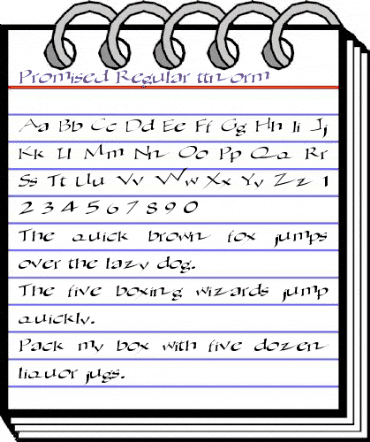 Promised Regular ttnorm
Aa Bb Cc Dd Ee Ff Gg Hh Ii Jj
Kk Ll Mm Nn Oo Pp Qq Rr
Ss Tt Uu Vv Ww Xx Yy Zz 1
2 3 4 5 6 7 8 9 0
The quick brown fox jumps
over the lazy dog.
The five boxing wizards jump
quickly.
Pack my box with five dozen
liquor jugs.